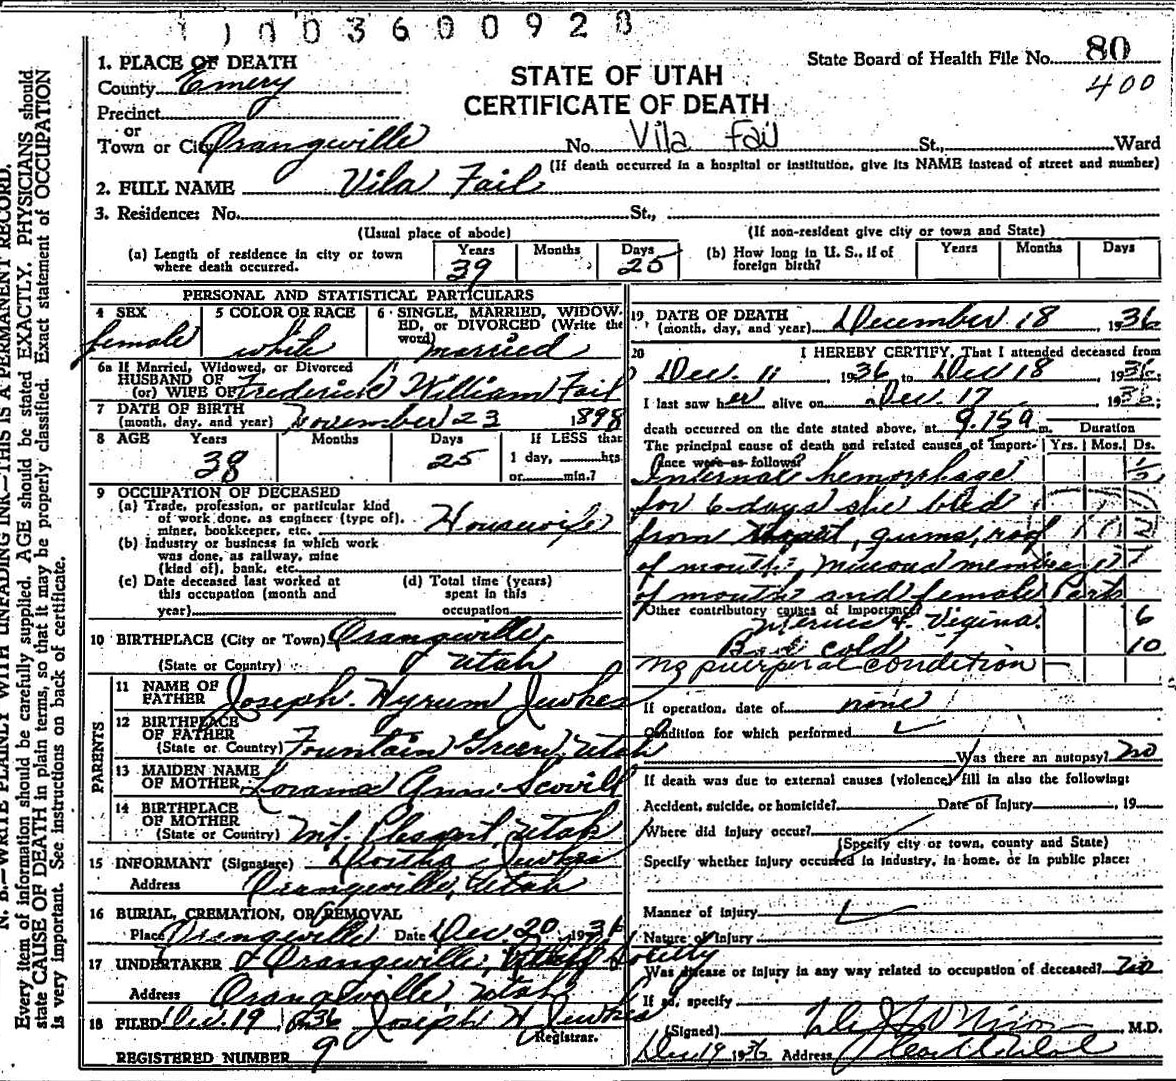 1 1 0 0 3 6 0 0 9 2 8
State Board of Health File No. 80
400
STATE OF UTAH
CERTIFICATE OF DEATH
1. PLACE OF DEATH
County Emery
Precinct
or
Town or City Orangeville No. Vila Fail St., Ward
(If death occurred in a hospital or institution, give its NAME instead of street and number)
2. FULL NAME Vila Fail
3. Residence: No. St.,
(Usual place of abode) (If non-resident give city or town and State)
(a) Length of residence in city or town where death occurred. Years 39 Months Days 25
(b) How long in U. S., if of foreign birth? Years Months Days
PERSONAL AND STATISTICAL PARTICULARS
4 SEX female
5 COLOR OR RACE white
6 SINGLE, MARRIED, WIDOWED, or DIVORCED (Write the word) married
6a If Married, Widowed, or Divorced
HUSBAND OF
(or) WIFE OF Frederick William Fail
7 DATE OF BIRTH
(month, day, and year) November 23 1898
8 AGE Years 38 Months Days 25 If LESS than 1 day, hrs. or min.?
9 OCCUPATION OF DECEASED
(a) Trade, profession, or particular kind of work done, as engineer (type of), miner, bookkeeper, etc. Housewife
(b) Industry or business in which work was done, as railway, mine (kind of), bank, etc.
(c) Date deceased last worked at this occupation (month and year)
(d) Total time (years) spent in this occupation
10 BIRTHPLACE (City or Town) Orangeville,
(State or Country) Utah
PARENTS
11 NAME OF FATHER Joseph Hyrum Jewkes
12 BIRTHPLACE OF FATHER
(State or Country) Fountain Green, Utah
13 MAIDEN NAME OF MOTHER Lorama Ann Scovill
14 BIRTHPLACE OF MOTHER
(State or Country) Mt. Pleasant, Utah
15 INFORMANT (Signature) Jewkes
Address Orangeville, Utah
16 BURIAL, CREMATION, OR REMOVAL
Place Orangeville Date Dec. 20, 1936
17 UNDERTAKER Orangeville, Relief Society
Address Orangeville, Utah
18 FILED Dec. 19 1936 Joseph H Jewkes
Registrar.
REGISTERED NUMBER 9
19 DATE OF DEATH
(month, day, and year) December 18 1936
20 I HEREBY CERTIFY, That I attended deceased from
Dec. 11 1936 to Dec 18 1936
I last saw her alive on Dec. 17 1936
death occurred on the date stated above, at 9.15 a m. Duration
The principal cause of death and related causes of Importance were as follows: Yrs. Mos. Ds.
Internal hemorrhage 1/2
for 6 days she bled
from gums, roof
of mouth, membrane
of mouth and female Parts
Other contributory causes of Importance:
& Vigina. 6
Bad cold 10
No puerperal condition
If operation, date of none
Condition for which performed
Was there an autopsy? no
If death was due to external causes (violence) fill in also the following:
Accident, suicide, or homicide? Date of Injury , 19
Where did injury occur?
(Specify city or town, county and State)
Specify whether injury occurred in industry, in home, or in public place:
Manner of injury
Nature of injury
Was disease or injury in any way related to occupation of deceased? no
If so, specify
(Signed) M.D.
Dec 19 1936 Address
N. B.—WRITE PLAINLY WITH UNFADING INK—THIS IS A PERMANENT RECORD.
Every item of information should be carefully supplied. AGE should be stated EXACTLY. PHYSICIANS should
state CAUSE OF DEATH in plain terms, so that it may be properly classified. Exact statement of OCCUPATION
is very important. See instructions on back of certificate.